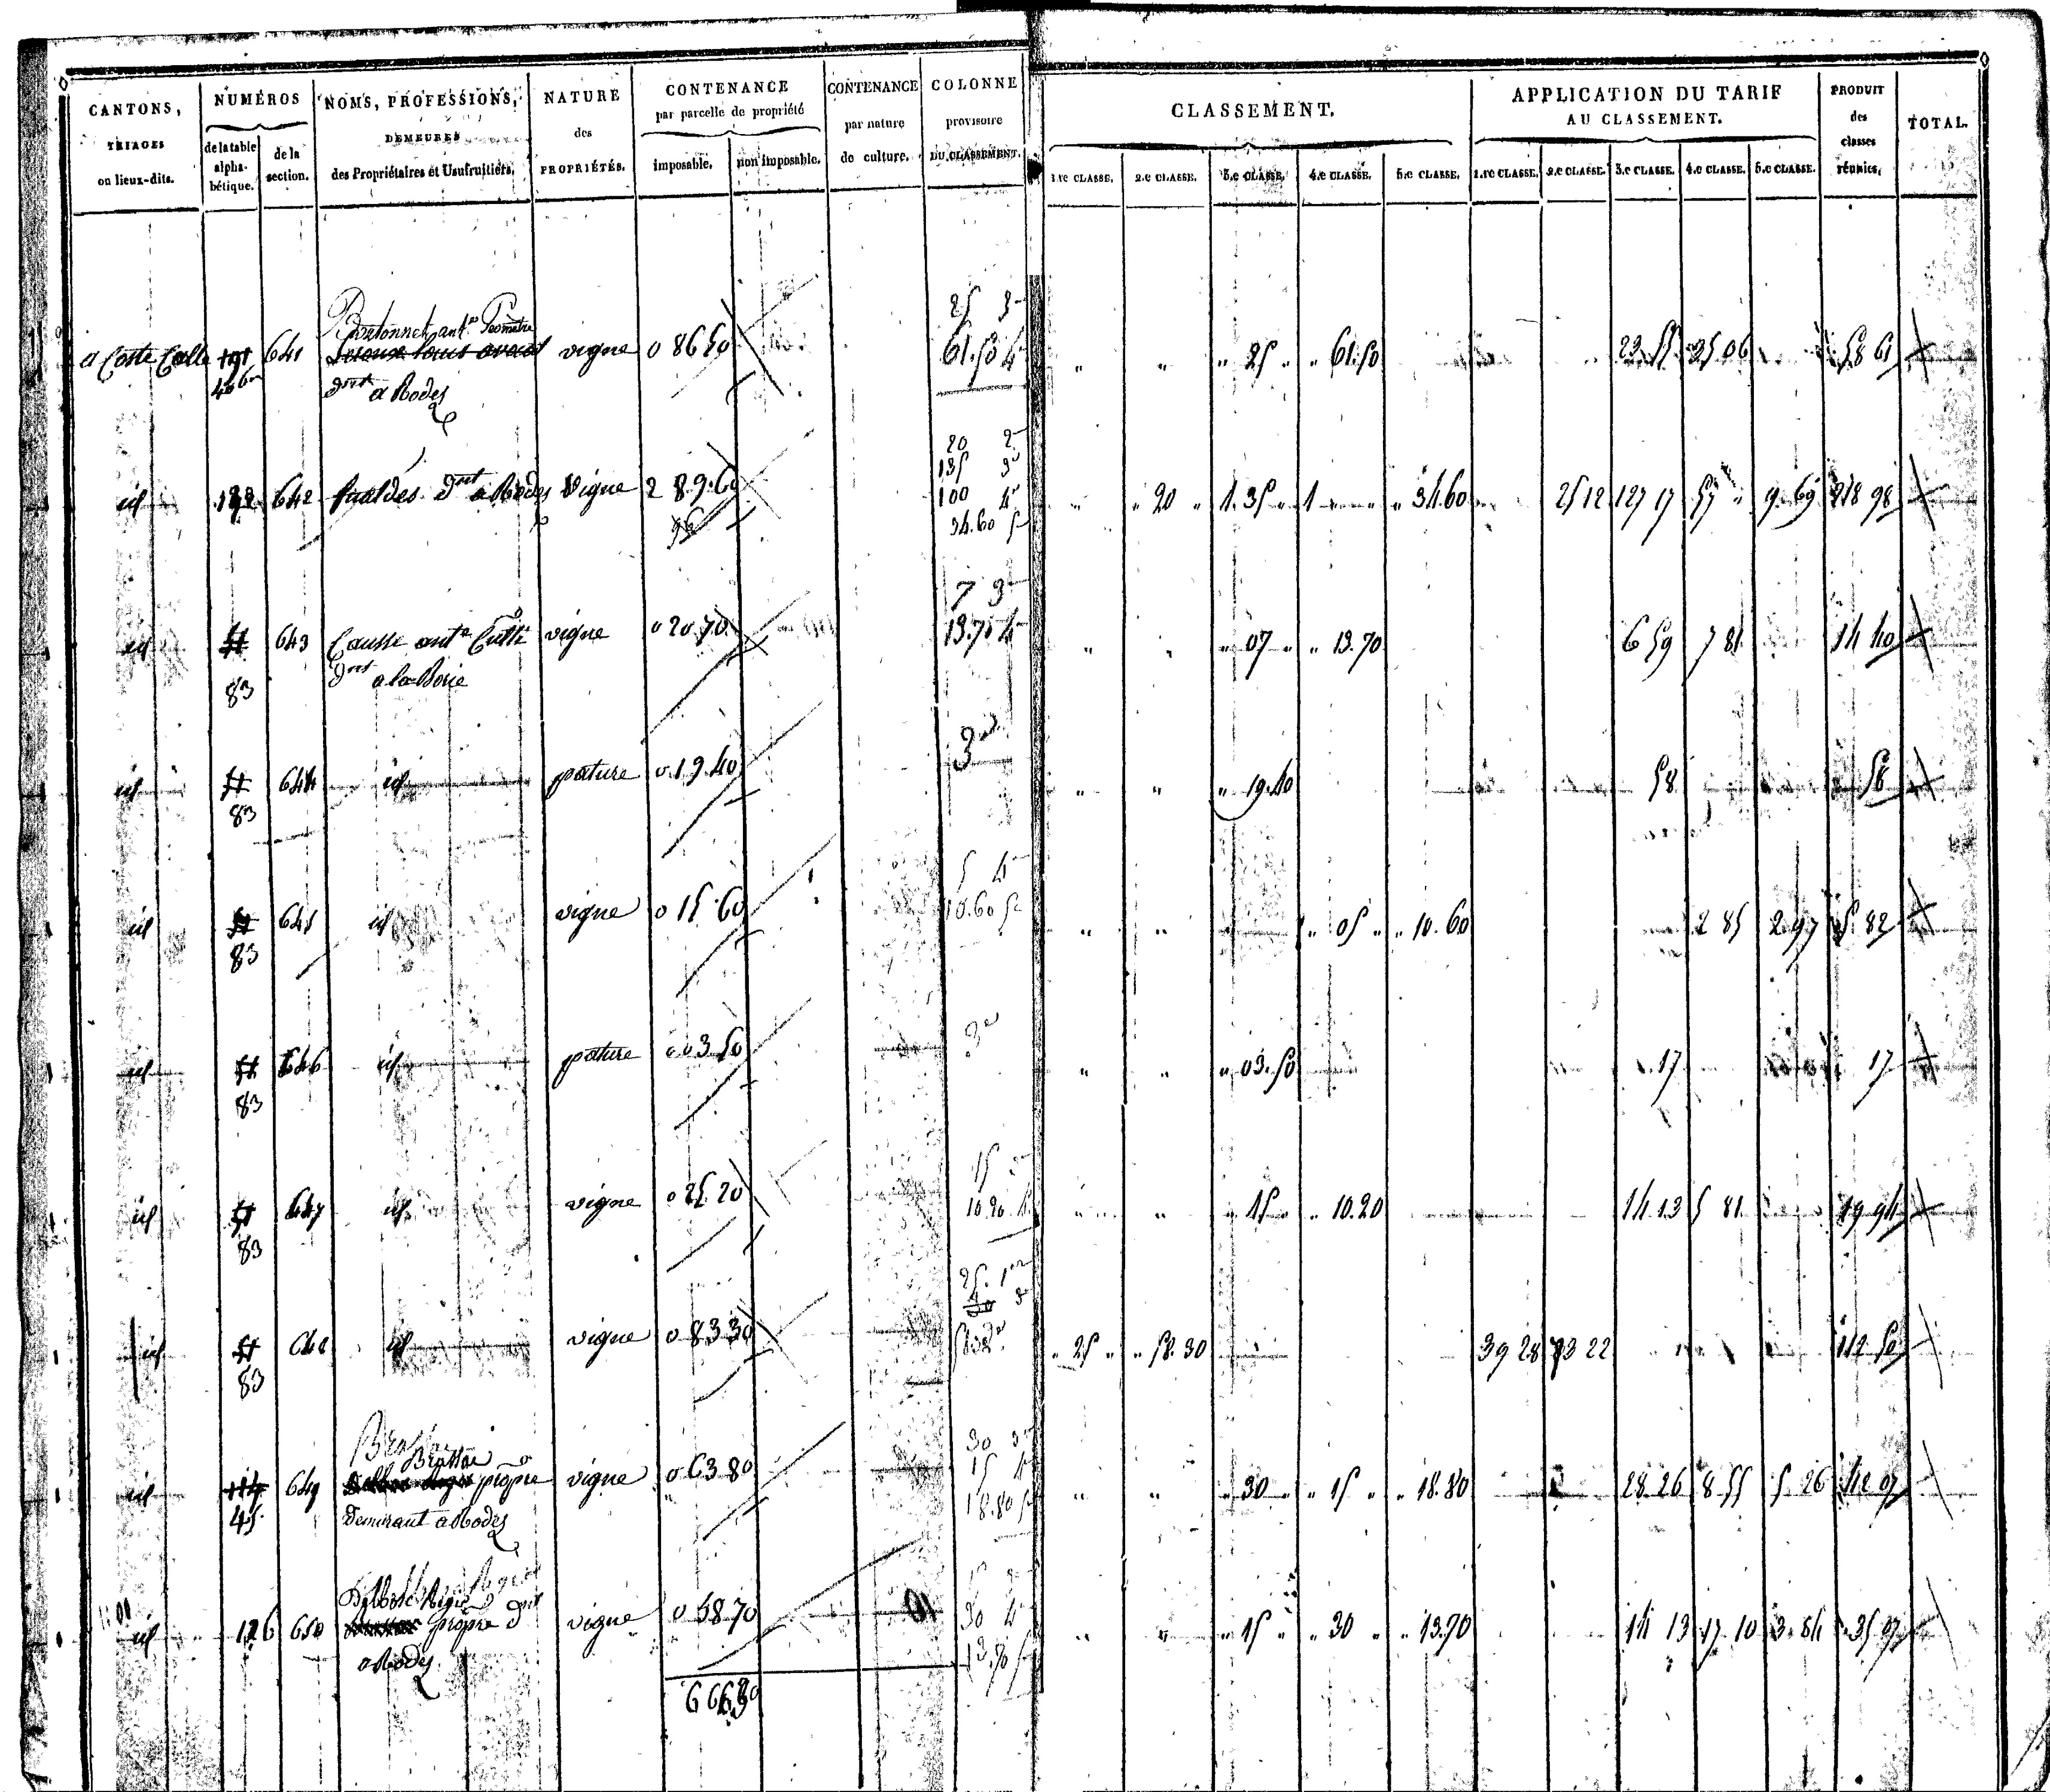 CANTONS, TRIAGES ou lieux-dits.
NUMÉROS de la table alphabétique. de la section.
NOMS, PROFESSIONS, DEMEURES des Propriétaires et Usufruitiers.
NATURE des PROPRIÉTÉS.
CONTENANCE par parcelle de propriété imposable. non imposable.
CONTENANCE par nature de culture.
COLONNE provisoire DU CLASSEMENT.
CLASSEMENT.
1.re CLASSE. 2.e CLASSE. 3.e CLASSE. 4.e CLASSE. 5.e CLASSE.
APPLICATION DU TARIF AU CLASSEMENT.
1.re CLASSE. 2.e CLASSE. 3.e CLASSE. 4.e CLASSE. 5.e CLASSE.
PRODUIT des classes réunies.
TOTAL.
25 3
a Coste Calle 191 641 vigne 0 86 50 61.50 4 " " " 25 " " 61.50 23 55 35 06 58 61
a Rodes
20 2
135 3
id 192 642 fualdes a Rodes vigne 2 89 60 100 4 " " 20 " 1. 35 " 1 " 34.60 25 12 127 17 57 " 9 69 218 98
34.60 5
7 3
id 643 Causse vigne 0 20 70 13.70 4 " " " 07 " " 13.70 6 59 7 81 14 40
83 a la Borie
3
id 644 id pature 0 19 40 " " " 19.40 58 58
83
5 4
id 645 id vigne 0 15 60 10.60 5 " " " 05 " " 10.60 2 85 2 97 5 82
83
id 646 id pature 0 03 50 3 " " " 03.50 17 17
83
15 3
id 647 id vigne 0 25 20 10.20 4 " " " 15 " " 10.20 14 13 5 81 19 94
83
25
id 648 id vigne 0 83 30 " 25 " " 58.30 39 28 73 22 112 50
83
30 3
Brassac 15 4
id 114 649 propre vigne 0 63 80 18.80 5 " " " 30 " " 15 " " 18.80 28 26 8 55 5 26 42 07
45 Demeurant a Rodes
id 126 650 propre vigne 0 58 70 30 4 " " " 15 " " 30 " " 13.70 14 13 17 10 3 84 35 07
a Rodes 13.70 5